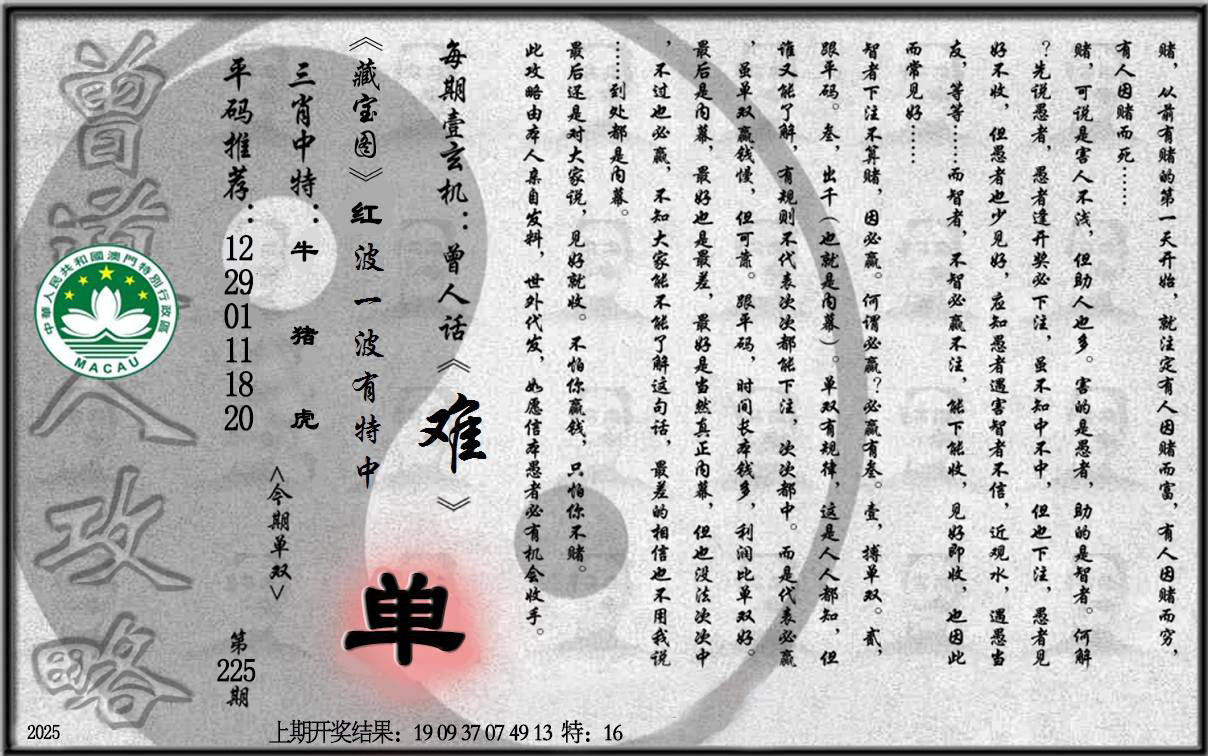 赌，从前有赌的第一天开始，就注定有人因赌而富，有人因赌而穷，
有人因赌而死……
赌，可说是害人不浅，但助人也多。害的是愚者，助的是智者。何解
？先说愚者，愚者逢开奖必下注，虽不知中不中，但也下注，愚者见
好不收，但愚者也少见好，应知愚者遇害智者不信，近观水，遇愚当
友，等等……而智者，不智必赢不注，能下能收，见好即收，也因此
而常见好……
智者下注不算赌，因必赢。何谓必赢？必赢有叁。壹，搏单双。贰，
跟平码。叁，出千（也就是内幕）。单双有规律，这是人人都知，但
谁又能了解，有规则不代表次次都能下注，次次都中。而是代表必赢
，虽单双赢钱慢，但可靠。跟平码，时间长本钱多，利润比单双好。
最后是内幕，最好也是最差，最好是当然真正内幕，但也没法次次中
，不过也必赢，不知大家能不能了解这句话，最差的相信也不用我说
……到处都是内幕。
最后还是对大家说，见好就收。不怕你赢钱，只怕你不赌。
此攻略由本人亲自发料，世外代发，如愿信本愚者必有机会收手。
每期壹玄机：曾人话《难》
《藏宝图》红波一波有特中
单
三肖中特：牛猪虎
<今期单双>
平码推荐：12 29 01 11 18 20
第225期
曾道人攻略
中華人民共和國澳門特別行政區
MACAU
2025
上期开奖结果：19 09 37 07 49 13 特：16